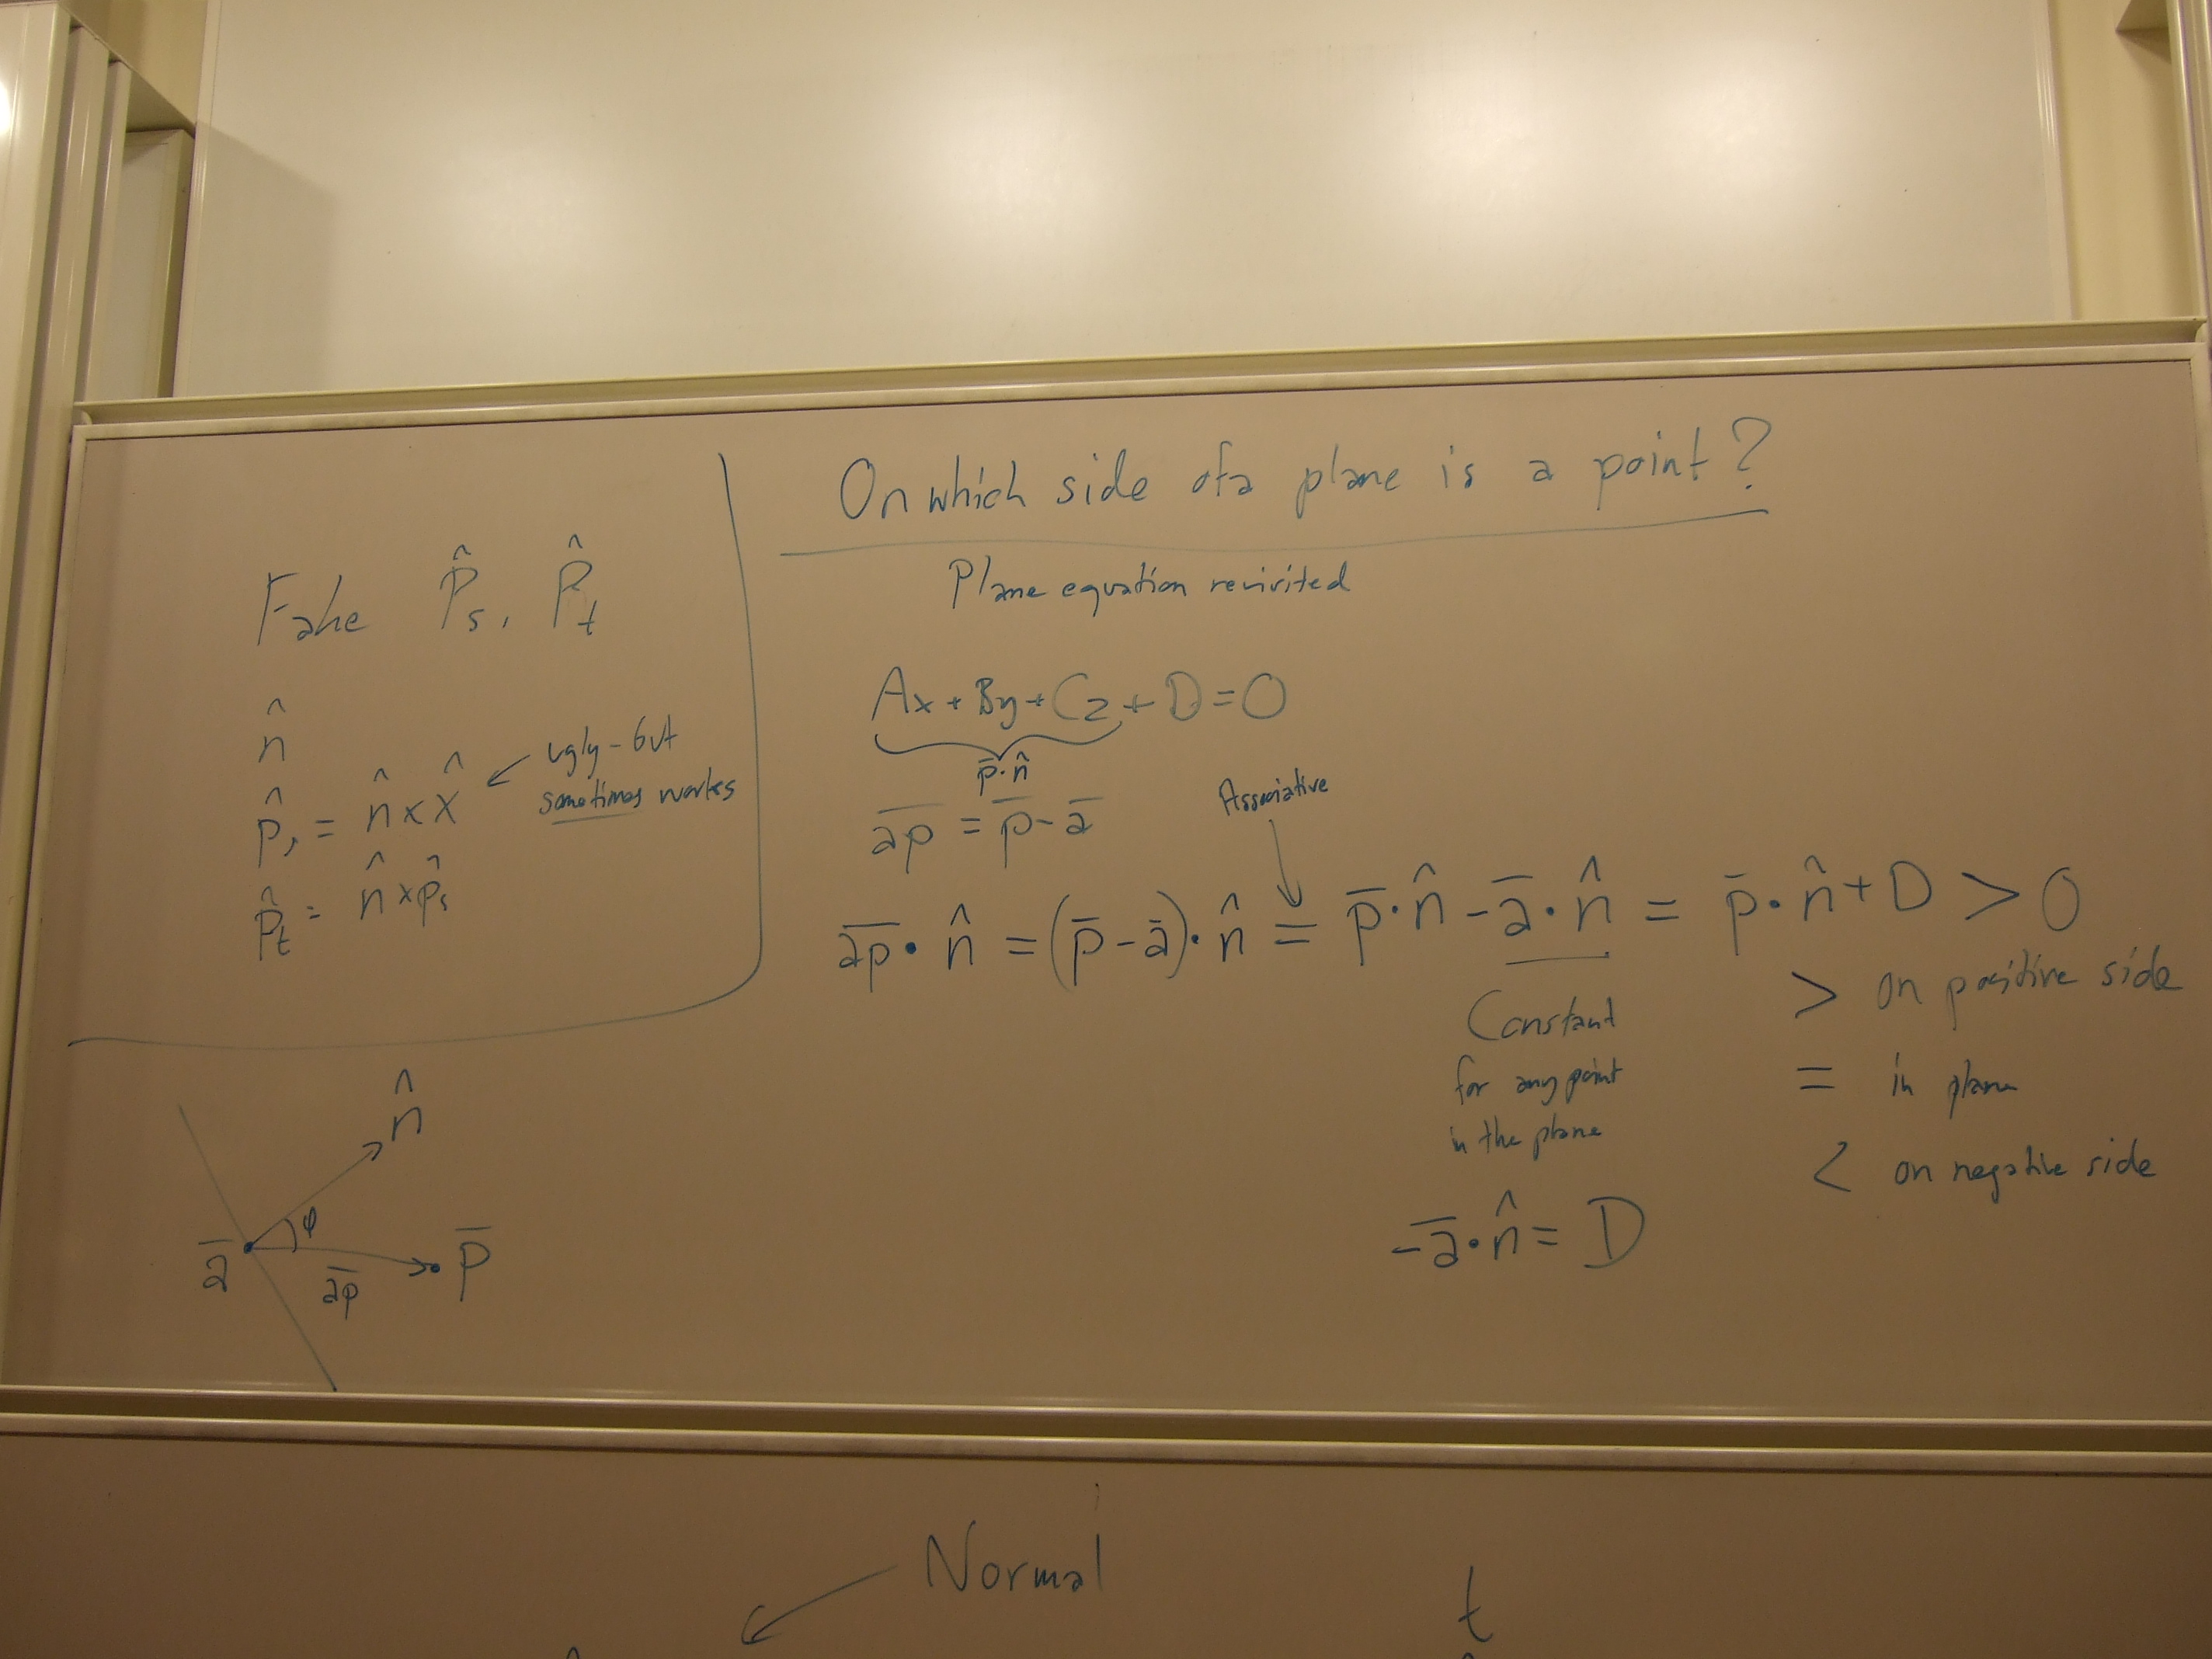 Fake P̂s, P̂t
n̂
p̂s = n̂ × x̂ ← ugly - but
sometimes works
p̂t = n̂ × p̂s
On which side of a plane is a point?
Plane equation revisited
Ax + By + Cz + D = 0
p̄·n̂
a̅p̅ = p̄ - ā
Associative
a̅p̅ · n̂ = (p̄ - ā) · n̂ = p̄ · n̂ - ā · n̂ = p̄ · n̂ + D > 0
Constant
for any point
in the plane
-ā · n̂ = D
> on positive side
= in plane
< on negative side
n̂
φ
ā
a̅p̅
p̄
Normal
t